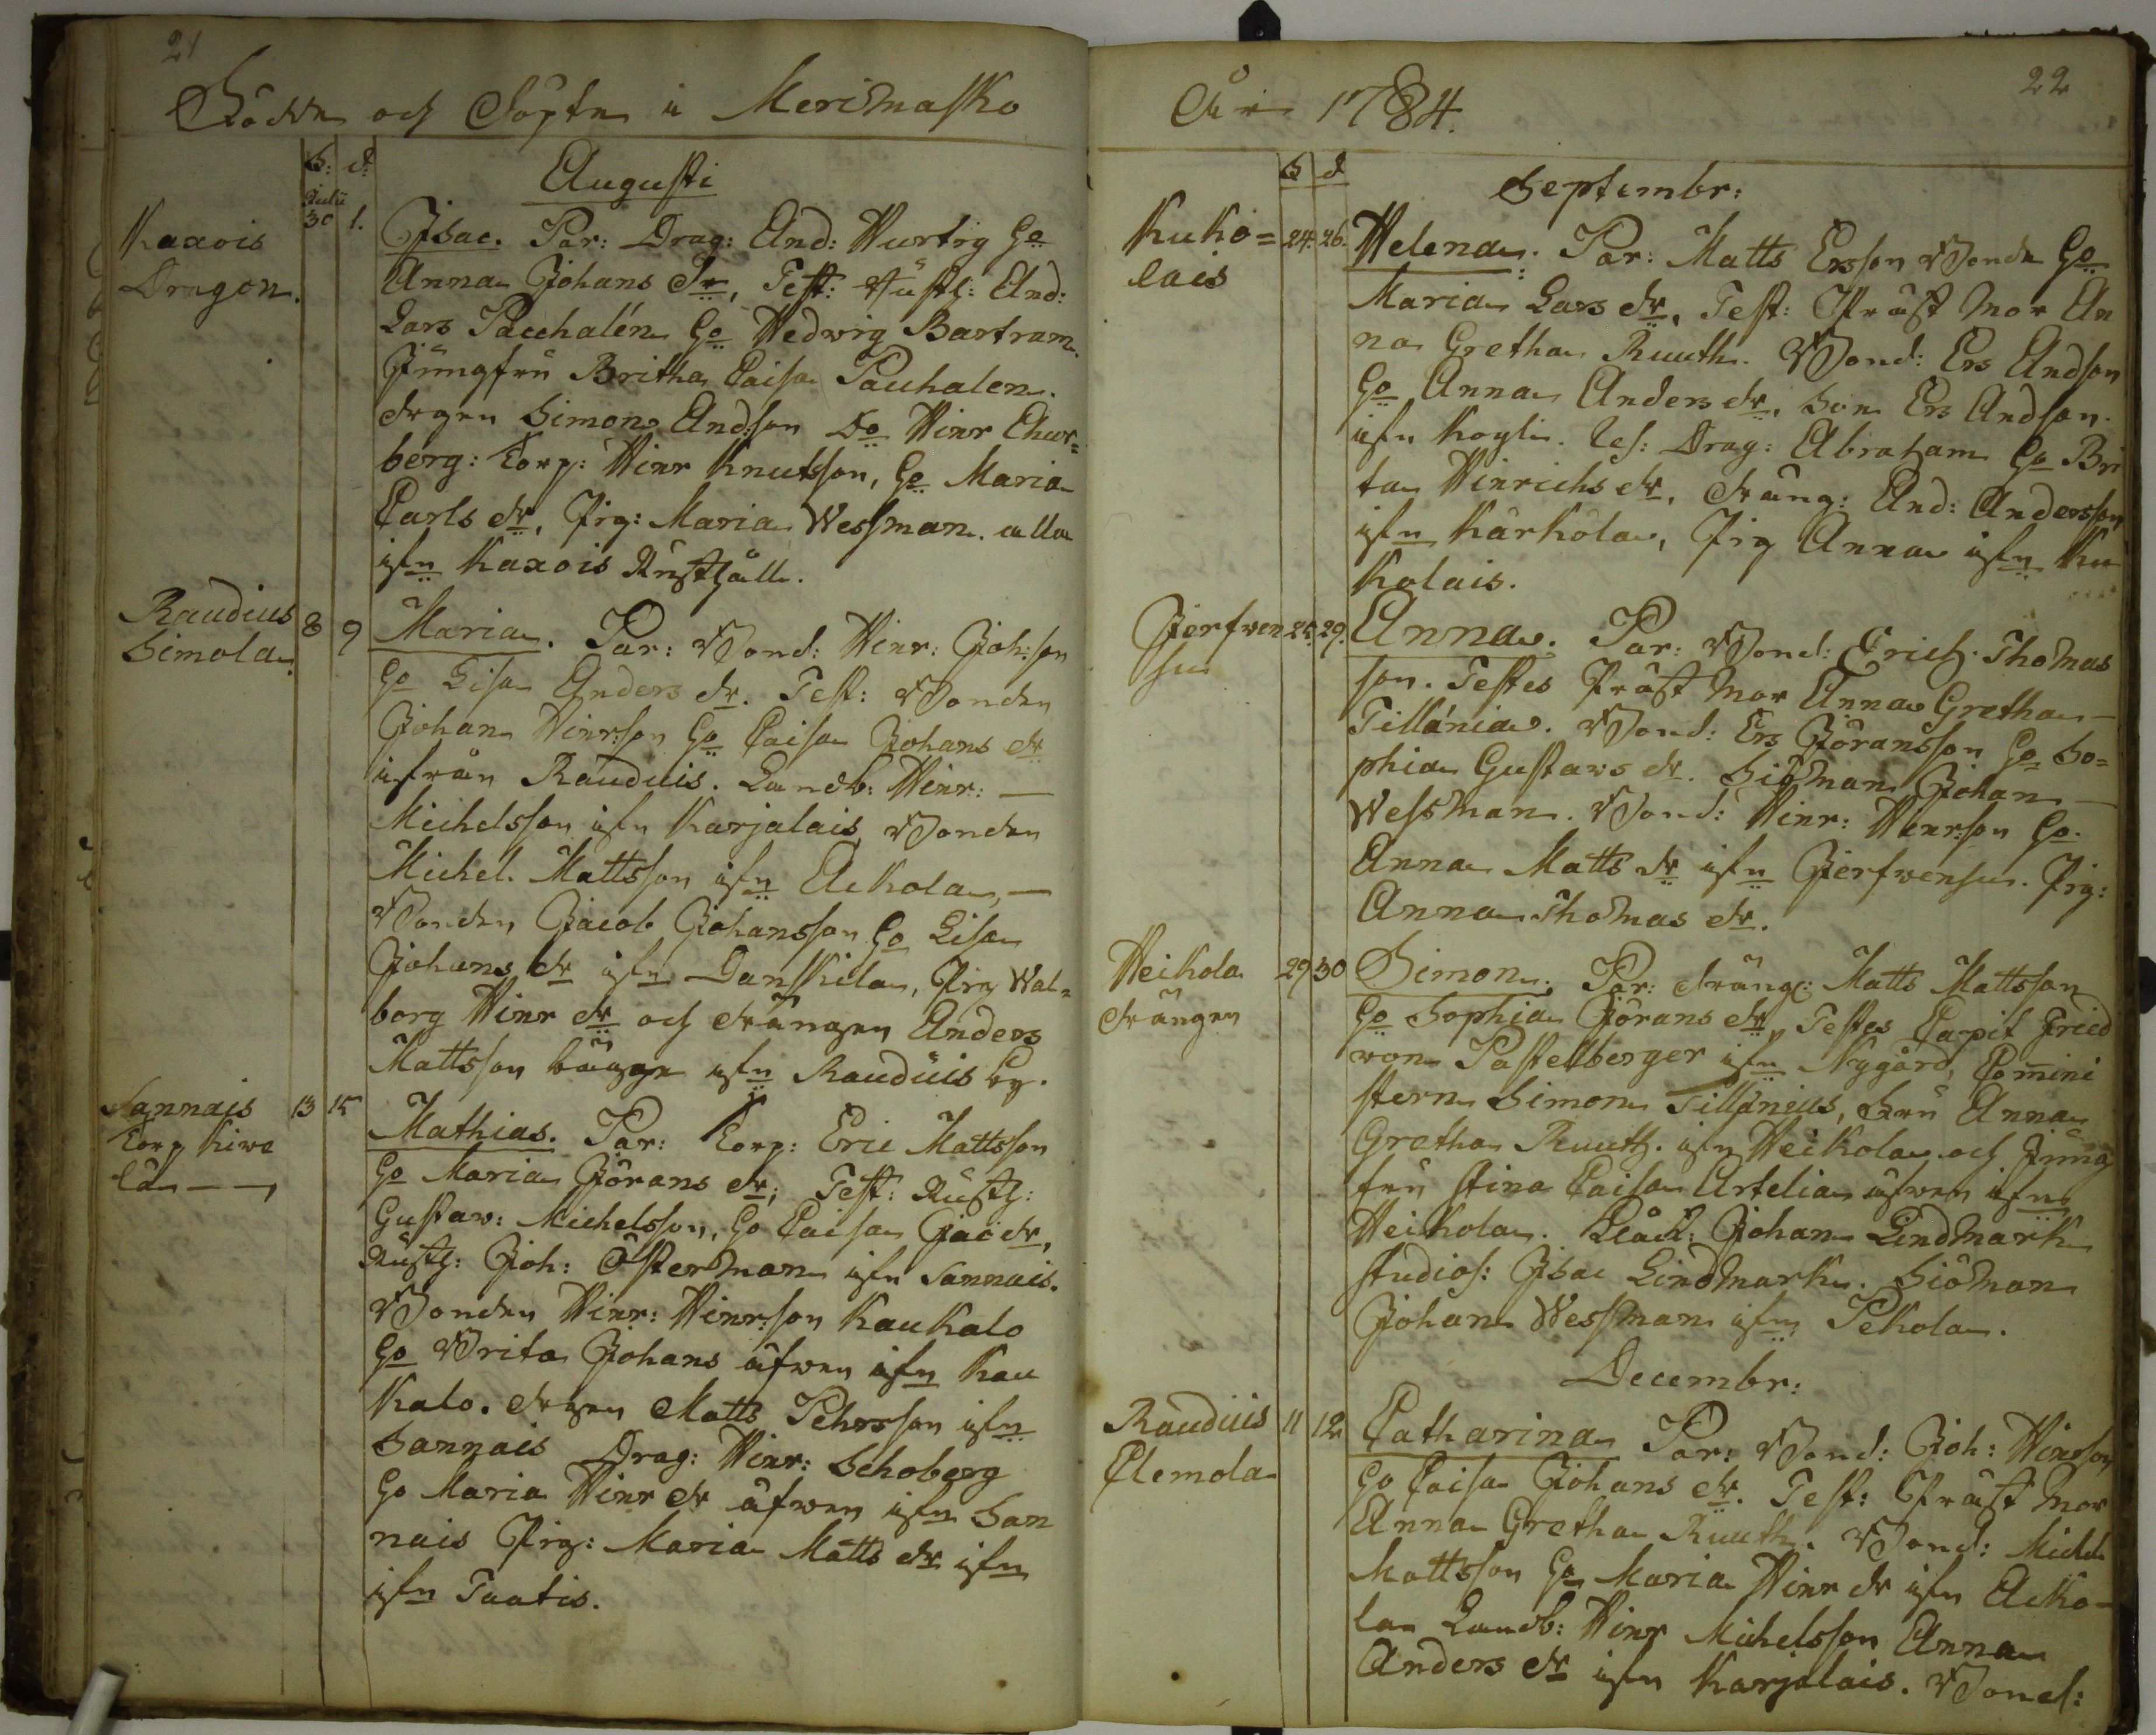 21
Födde och Döpte i Merimasko
F: d:
Julii
Augusti
Kaxois
Dragon.
30 1.
Isac. Par: Drag: And: Hurtig Ho
Anna Johans dr, Test: Rusth: And:
Lars Pacchalén Ho Hedwig Bartram.
Jungfru Britha Caisa Pacchalen.
drgen Simon Andson So Hinr Eher=
berg: Corp: Hinr Knutsson, Ho Maria
Carls dr, Pig: Maria Wessman. alla
ifrn Kaxois Rusthåll.
Raudius
Simola
8 9
Maria. Par: Bond: Hinr: Johson
Ho Lisa Anders dr. Test: Bonden
Johan Hinrson Ho Caisa Johans dr
ifrån Rauduis. Landb: Hinr: —
Michelsson ifrn Karjalais, Bonden
Michel. Mattsson ifrn Ackola, —
Bonden Jacob Johansson Ho Lisa
Johans dr ifrn Danskila, Pig Wal=
borg Hinr dr och drängen Anders
Mattsson bägge ifrn Rauduis by.
Sannais
Torp Kiwe
lä — —
13 15
Mathias. Par: Torp: Eric Mattsson
Ho Maria Jörans dr; Test: Rusth:
Gustav: Michelsson, Ho Caisa Jac dr,
Rusth: Joh: Österman ifrn Sannais.
Bonden Hinr: Hinrson Kaukalo
Ho Brita Johans äfwen ifrn Kau
kalo. drgen Matts Pehrsson ifrn
Sannais Drag: Hinr: Schoberg
Ho Maria Hinr dr äfwen ifrn San
nais Pig: Maria Matts dr ifrn
ifrn Taatis.
22
År 1784.
F d
Septembr:
Kuko=
lais
24. 26.
Helena. Par: Matts Ersson Bonde Ho
Maria Lars dr, Test: Präst mor An
na Gretha Ruuth. Bond: Ers Andson
Ho Anna Anders dr, Son Ers Andson.
ifrn Koyli. Drag: Abraham Ho Bri
ta Hinrichs dr, dräng: And: Andersson
ifrn Kärkölä, Pig Anna ifrn Ku
kolais.
Jerfwen
su
25. 29.
Anna. Par: Bond: Erich Thomas
son. Testes Präst mor Anna Gretha —
Tillánia. Bond: Ers Göransson Ho So=
phia Gustavs dr. Siöman Johan —
Wessman. Bond: Hinr: Hinrson Ho.
Anna Matts dr ifrn Jerfwensu. Pig:
Anna Thomas dr.
Heikola
drängen
29 30
Simon. Par: dräng: Matts Mattsson
Ho Sophia Jörans dr, Testes Capit Fried
von Pastelberger ifrn Nygård, Comini
stern Simon Tillánius, Fru Anna
Gretha Ruuth. ifrn Heikola och Jung
fru Stina Caisa Artelia äfwen ifrn
Heikola. Klåck: Johan Lindmark
studios: Isac Lindmark. Siöman
Johan Wessman ifrn Pekola.
Decembr:
Rauduis
Clemola
11 12
Catharina Par: Bond: Joh: Hinrson
Ho Caisa Johans dr. Test: Präst mor
Anna Gretha Ruuth. Bond: Michel
Mattsson Ho Maria Hinr dr ifrn Acko=
la Landb: Hinr Michelsson Anna
Anders dr ifrn Karjalais. Bond: